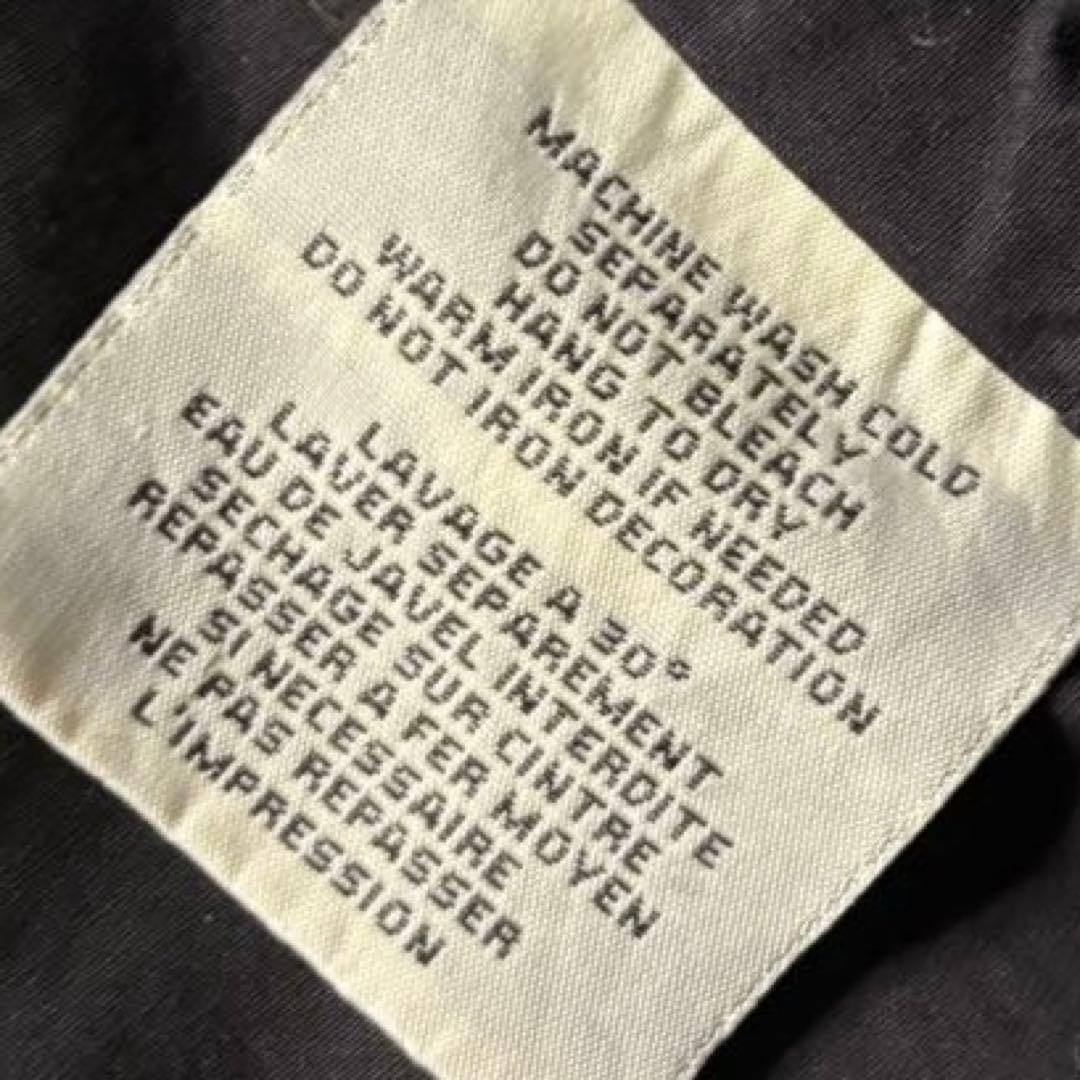 MACHINE WASH COLD
SEPARATELY
DO NOT BLEACH
HANG TO DRY
WARM IRON IF NEEDED
DO NOT IRON DECORATION
LAVAGE A 30°
LAVER SEPAREMENT
EAU DE JAVEL INTERDITE
SECHAGE SUR CINTRE
REPASSER A FER MOYEN
SI NECESSAIRE
NE PAS REPASSER
L'IMPRESSION